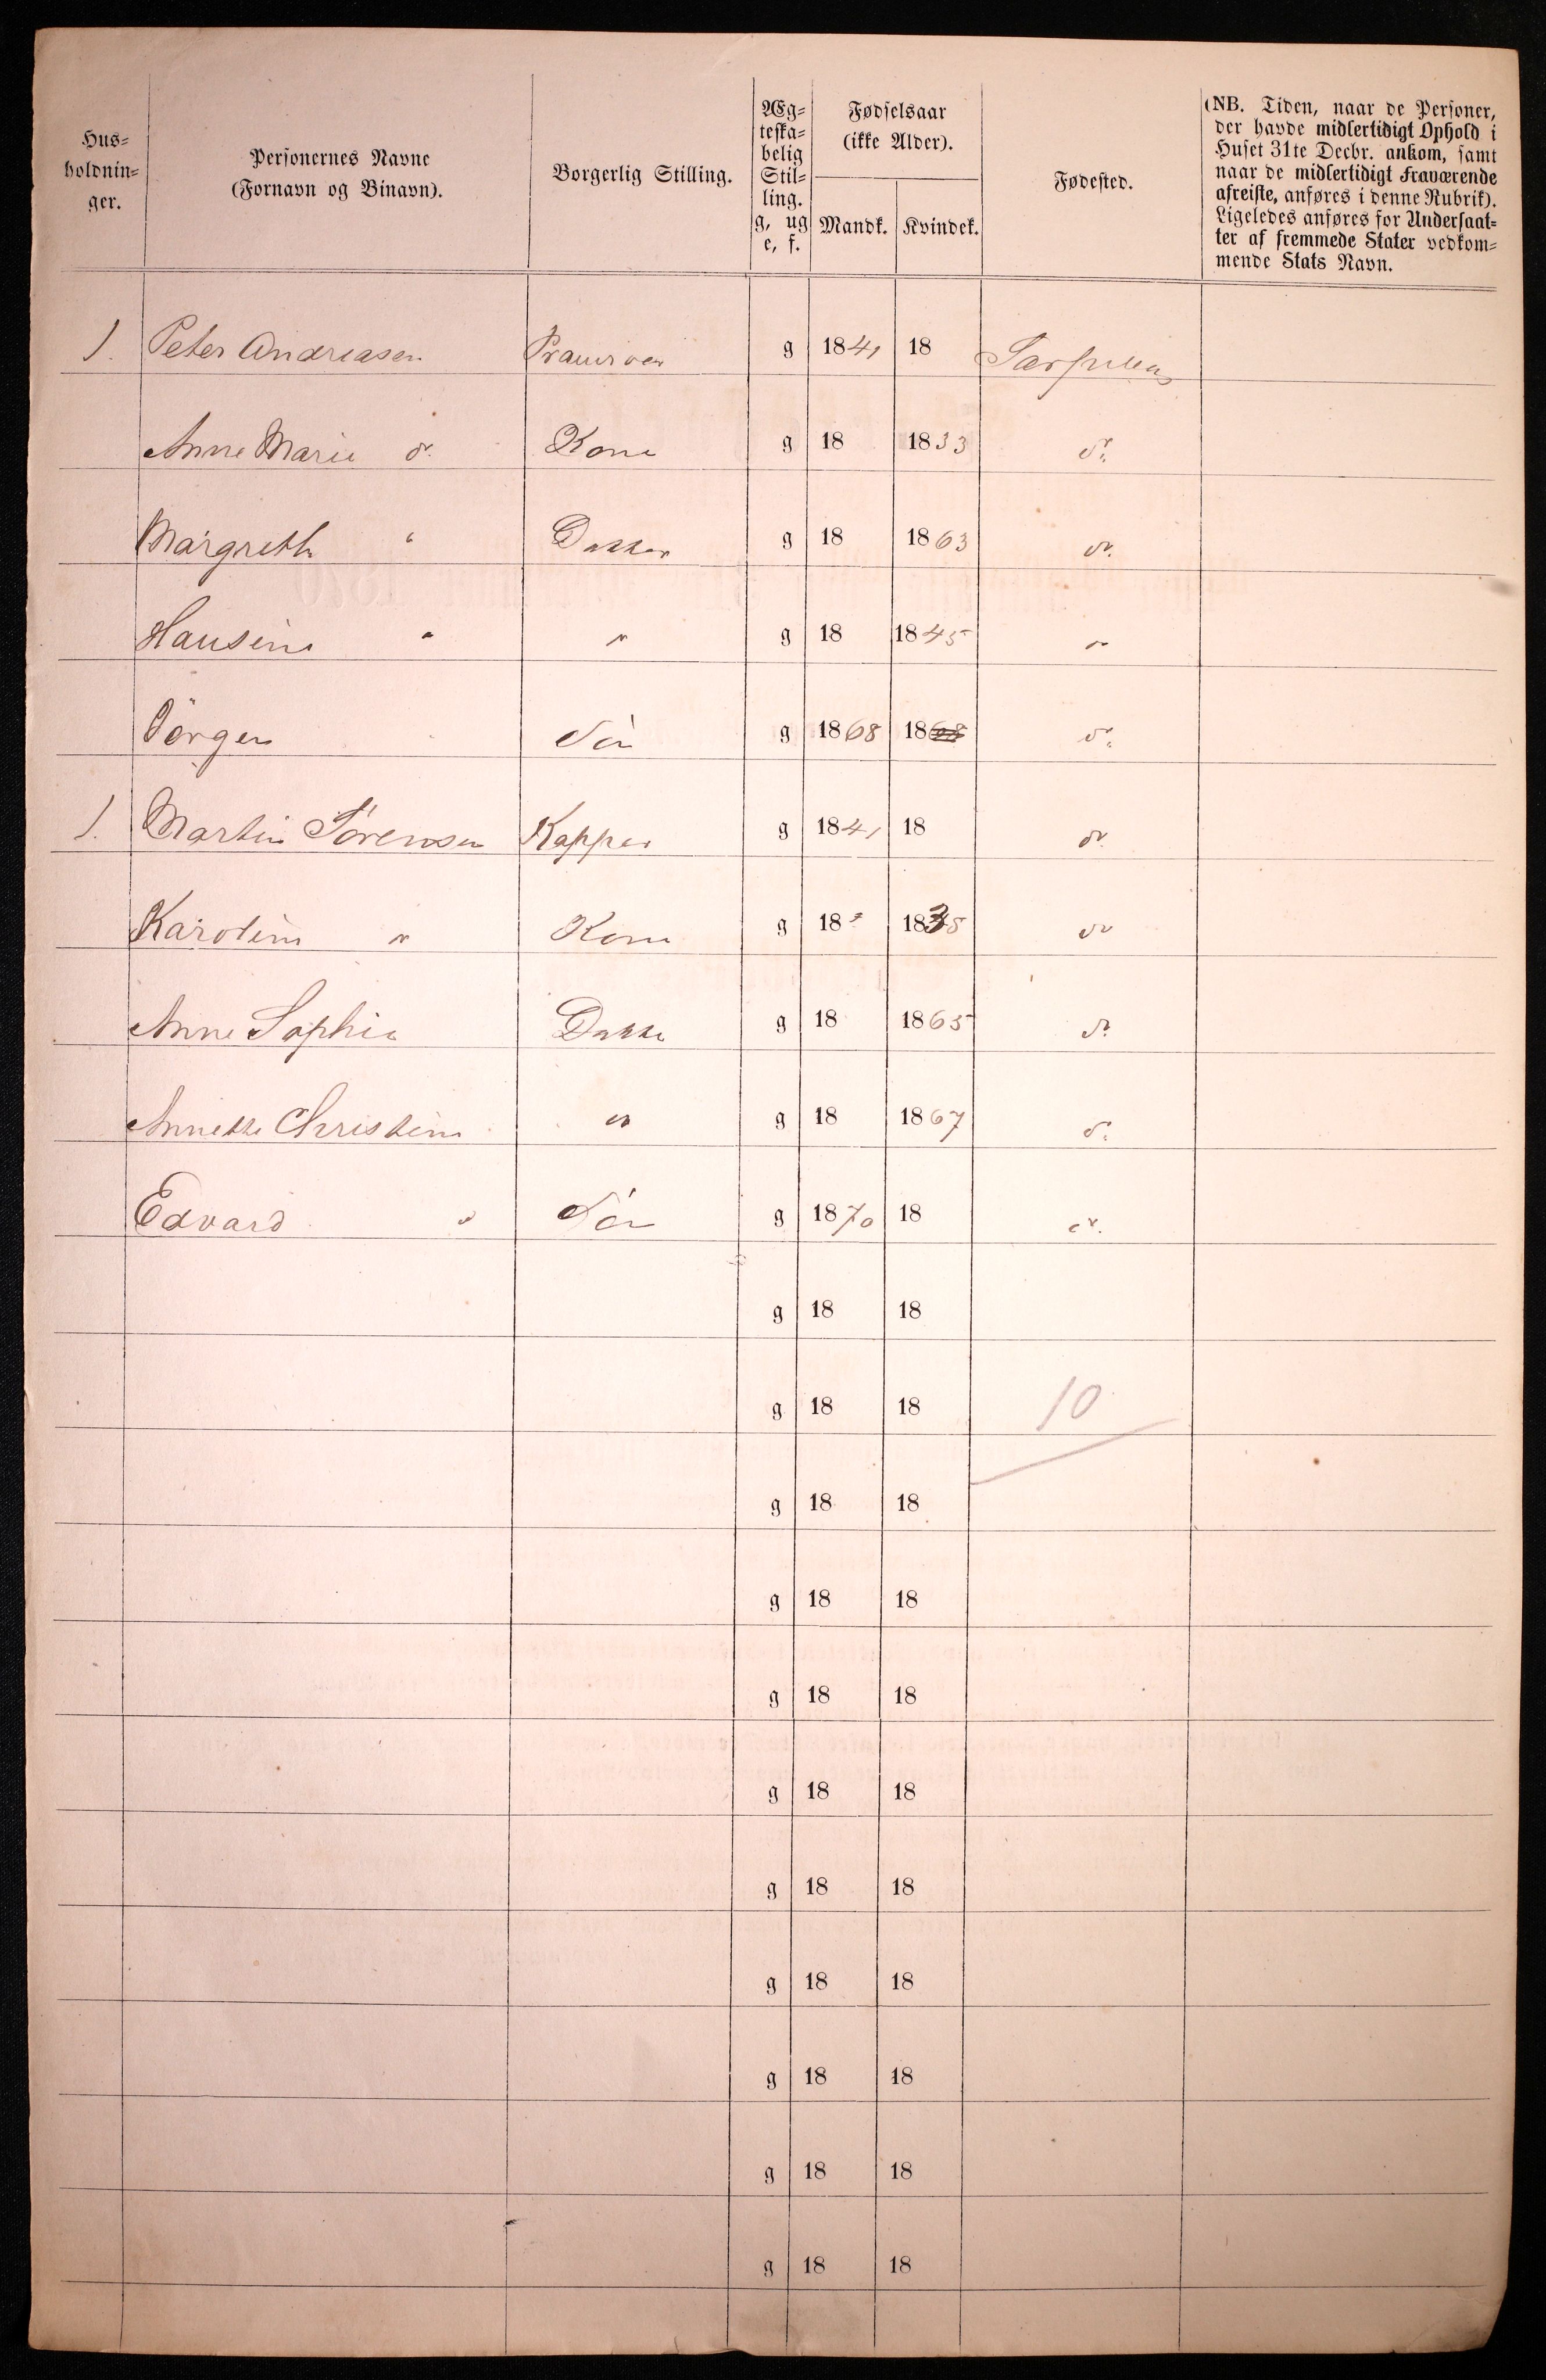 Hus=
holdnin=
ger.
Personernes Navne
(Fornavn og Binavn).
Borgerlig Stilling.
Æg=
teska=
belig
Stil=
ling.
g, ug
e, f.
Fødselsaar
(ikke Alder).
Mandk. Kvindek.
Fødested.
(NB. Tiden, naar de Personer,
der havde midlertidigt Ophold i
Huset 31te Decbr. ankom, samt
naar de midlertidigt Fraværende
afreiste, anføres i denne Rubrik).
Ligeledes anføres for Undersaat=
ter af fremmede Stater vedkom=
mende Stats Navn.
1. Peter Andreasen g 1841 18
Anne Marie do. Kone g 18 1833 do.
Margreth " Datter g 18 1863 do.
Hansine " " g 18 1845 "
Jörgen Sön g 1868 1868 do.
1. Martin Sörensen Kapper g 1841 18 do.
Karoline " Kone g 18 " 1835 do
Anne Sophie Datte g 18 1865 do.
Annette Christine " g 18 1867 do.
Edvard " Sön g 1870 18 do.
g 18 18
g 18 18 10
g 18 18
g 18 18
g 18 18
g 18 18
g 18 18
g 18 18
g 18 18
g 18 18
g 18 18